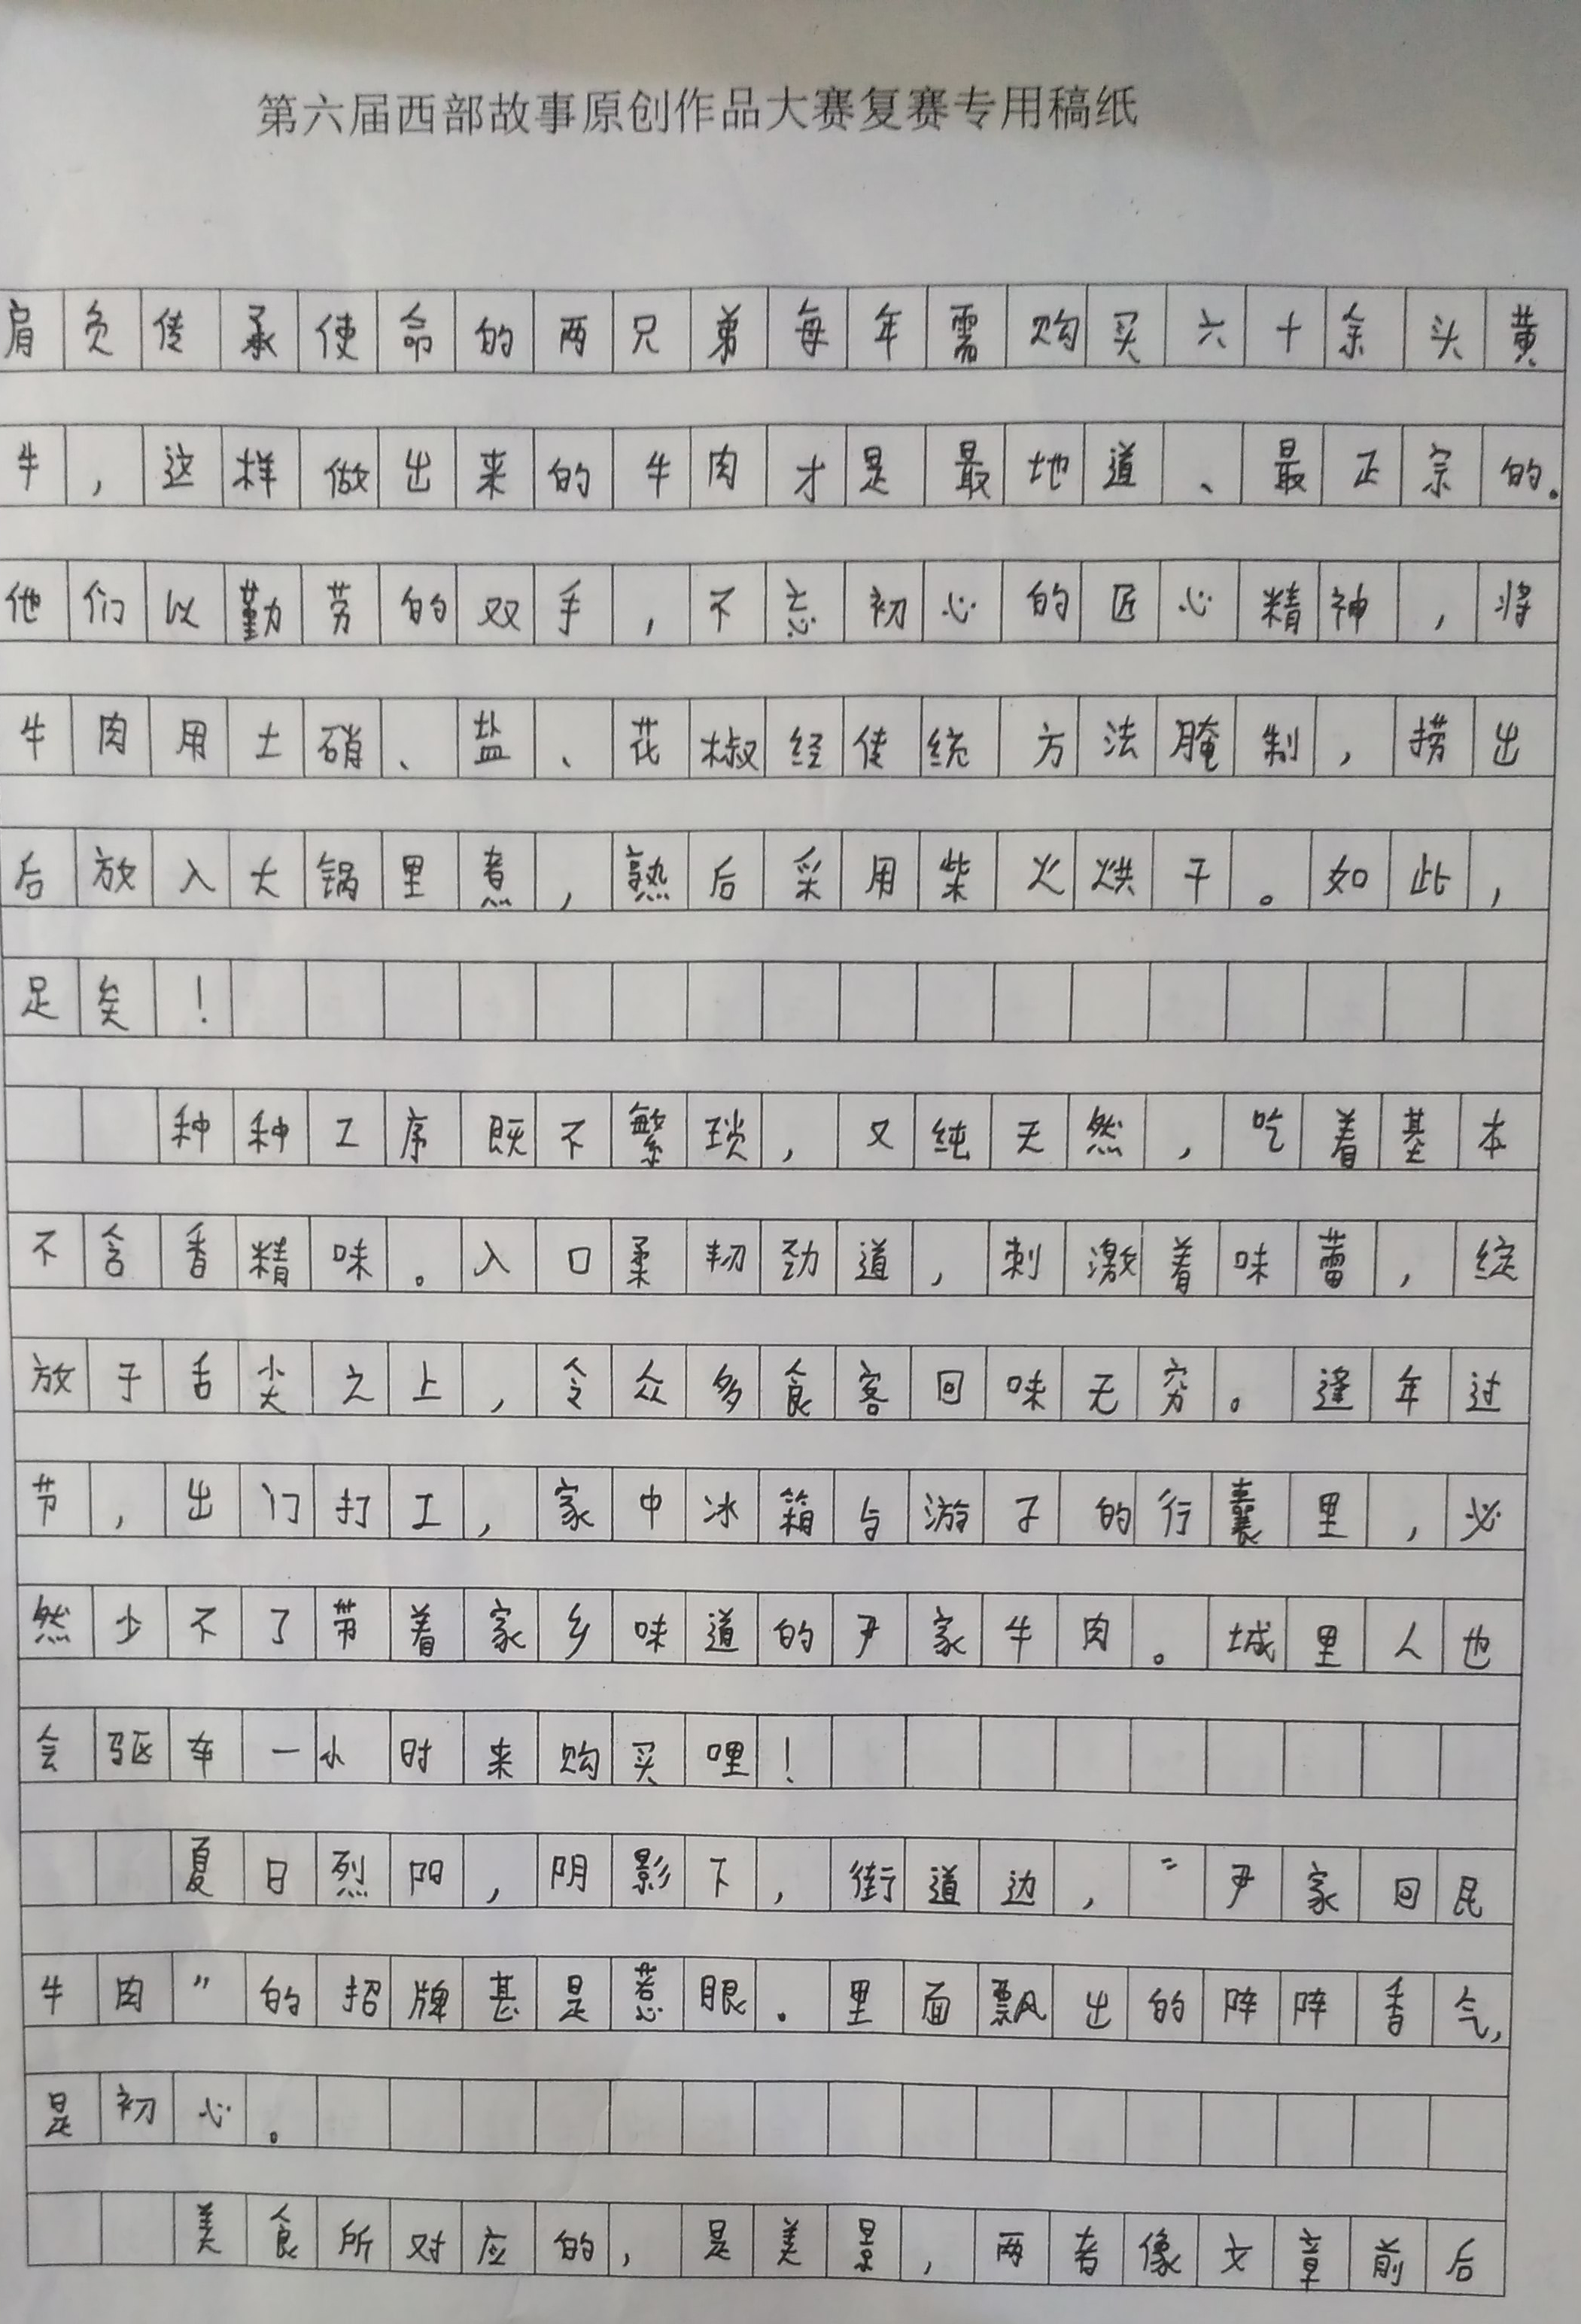 第六届西部故事原创作品大赛复赛专用稿纸
肩负传承使命的两兄弟每年需购买六十余头黄
牛，这样做出来的牛肉才是最地道、最正宗的。
他们以勤劳的双手，不忘初心的匠心精神，将
牛肉用土硝、盐、花椒经传统方法腌制，捞出
后放入大锅里煮，熟后采用柴火烘干。如此，
足矣！
种种工序既不繁琐，又纯天然，吃着基本
不含香精味。入口柔韧劲道，刺激着味蕾，绽
放于舌尖之上，令众多食客回味无穷。逢年过
节，出门打工，家中冰箱与游子的行囊里，必
然少不了带着家乡味道的尹家牛肉。城里人也
会驱车一小时来购买哩！
夏日烈阳，阴影下，街道边，“尹家回民
牛肉”的招牌甚是惹眼．里面飘出的阵阵香气，
是初心。
美食所对应的，是美景，两者像文章前后